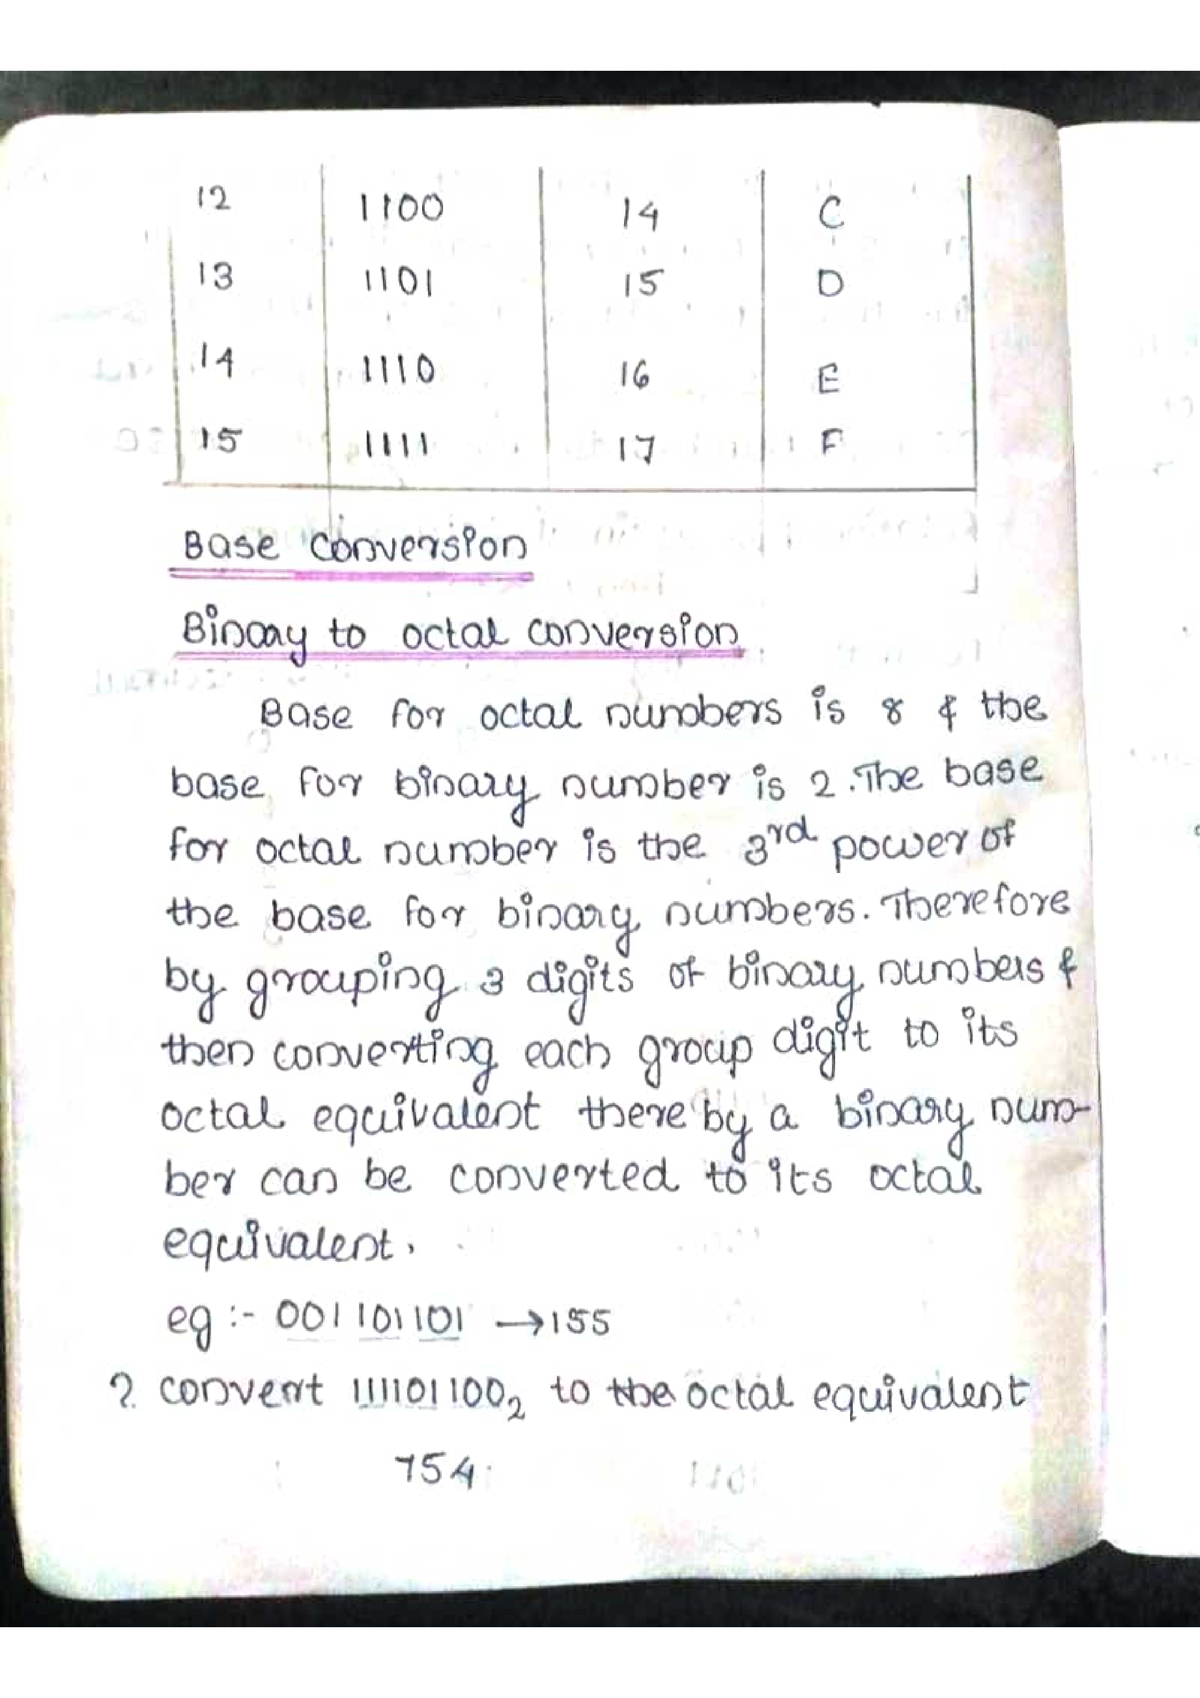 12 1100 14 C
13 1101 15 D
14 1110 16 E
15 1111 17 F
Base conversion
Binary to octal conversion
Base for octal numbers is 8 & the
base for binary number is 2. The base
for octal number is the 3rd power of
the base for binary numbers. Therefore
by grouping 3 digits of binary numbers &
then converting each group digit to its
octal equivalent there by a binary num-
ber can be converted to its octal
equivalent.
eg :- 001101101 → 155
? convert 111101100₂ to the octal equivalent
754